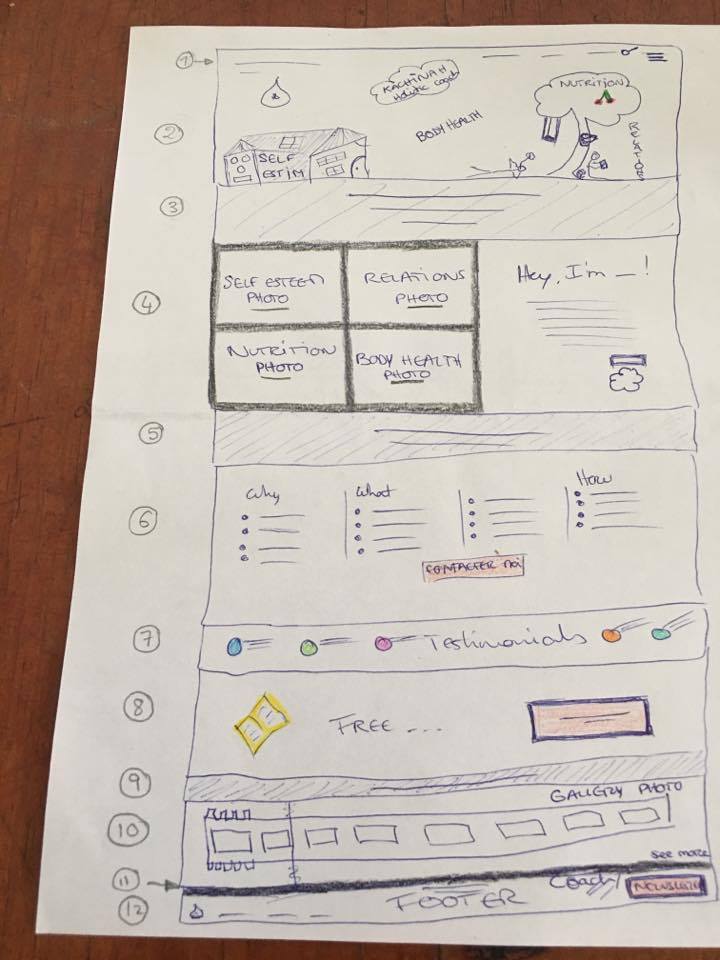 1
KACHINAH
Holistic coach
NUTRITION
2
BODY HEALTH
SELF
ESTIM
RELATIONS
3
4
SELF ESTEEM
PHOTO
RELATIONS
PHOTO
Hey, I'm _ !
NUTRITION
PHOTO
BODY HEALTH
PHOTO
5
6
Why
What
How
CONTACTER moi
7
Testimonials
8
FREE ...
9
GALLERY PHOTO
10
See more
11
12
FOOTER
Coach